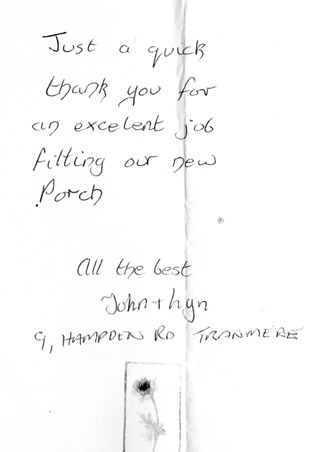 Just a quick
thank you for
an excelent job
fitting our new
Porch
All the best
John + Lyn
9, HAMPDEN RD TRANMERE